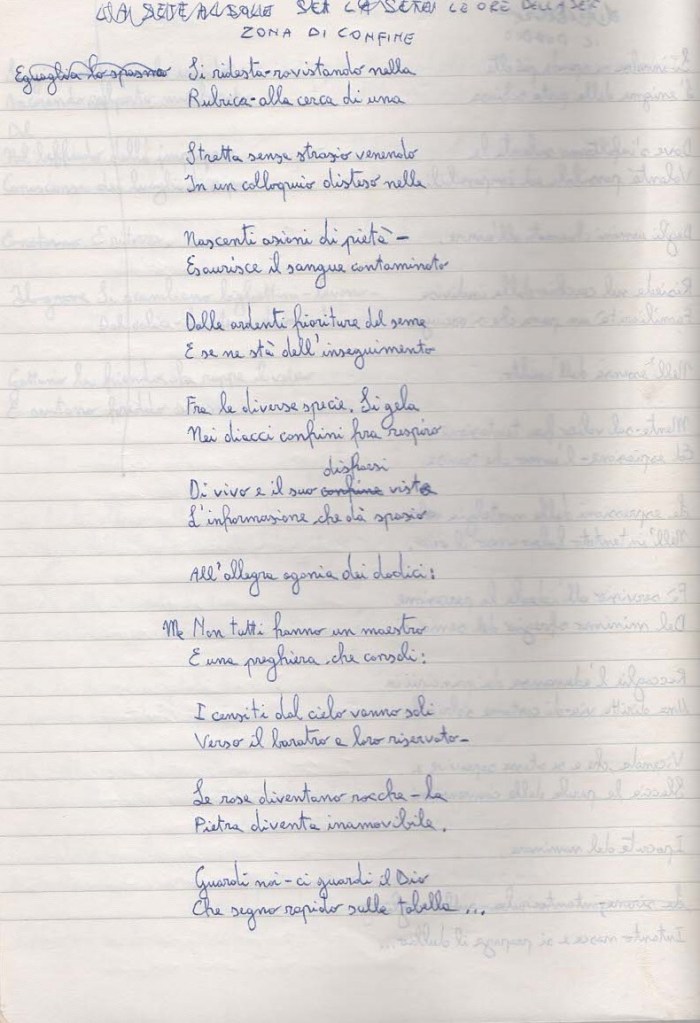 LE ORE DELLA SE
ZONA DI CONFINE
Eguaglia lo spasmo Si ridesta-rovistando nella
Rubrica-alla cerca di una
Stretta senza strazio venendo
In un colloquio disteso nella
Nascenti azioni di pietà-
Esaurisce il sangue contaminato
Dalle ardenti fioriture del seme
E se ne stà dell'inseguimento
Fra le diverse specie. Si gela
Nei diacci confini fra respiro
disfarsi
Di vivo e il suo confine vista
L'informazione che dà spazio
All'allegra agonia dei dodici:
Me Non tutti hanno un maestro
E una preghiera che consoli:
I censiti dal cielo vanno soli
Verso il baratro a loro riservato-
Le rose diventano rocche-la
Pietra diventa inamovibile.
Guardi noi-ci guardi il Dio
Che segno rapido sulla tabella...